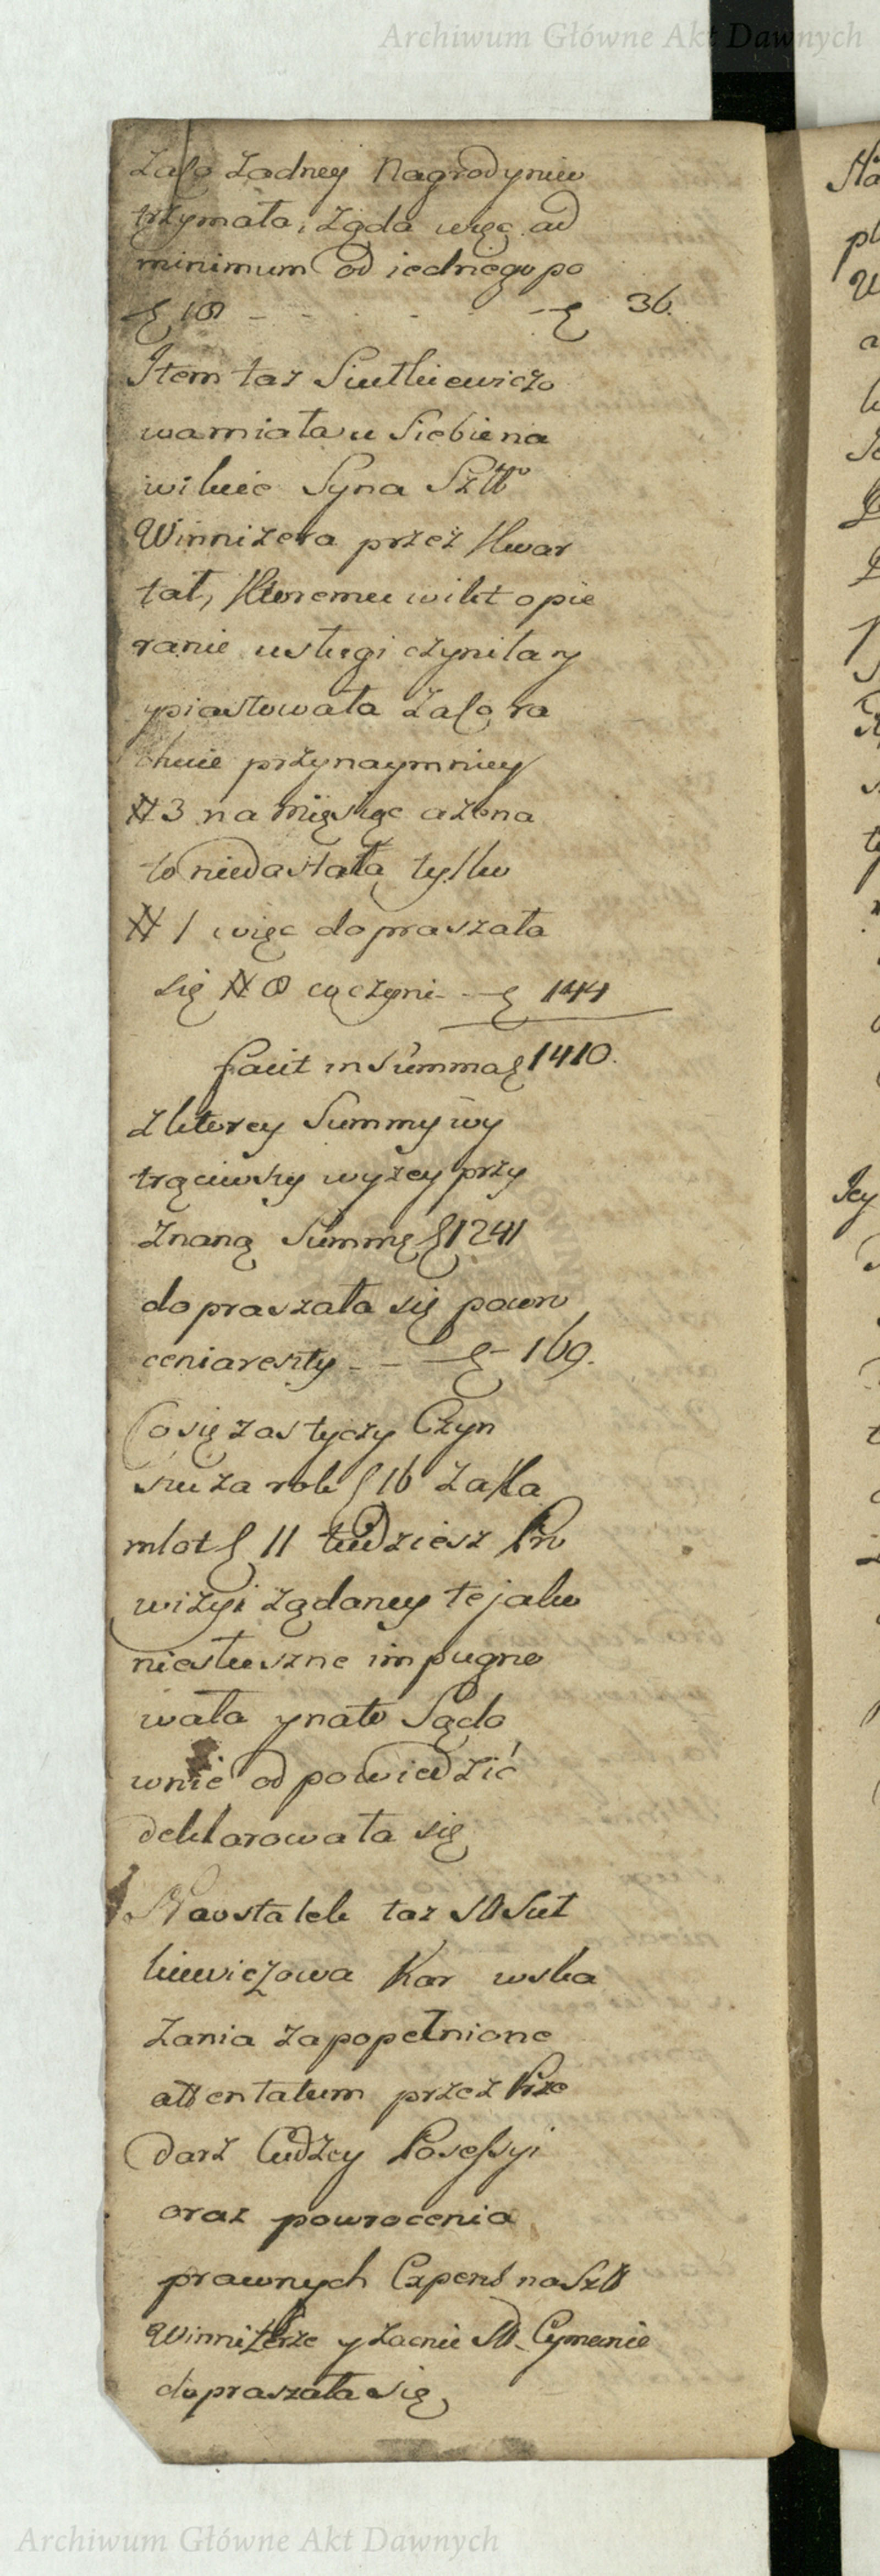 Archiwum Główne Akt Dawnych
Zaco żadney Nagrody nieo
trzymała, żąda więc ad
minimum od iednego po
ƒ 18 - - - - - ƒ 36.
Item taż Siutkiewiczo
wa miała u Siebie na
wikcie Syna Szltt
Winnizera przez Kwar
tał, Któremu wikt opie
ranie usługi czyniła y
ypiastowała Zaco ra
chuie przynaymniey
# 3 na Miesiąc a żona
to niedostała tylko
# 1 więc dopraszała
się # 8 co czyni - - ƒ 144
facit in Summa ƒ 1410.
Zktorey Summy wy
trąciwszy wyżey przy
Znaną Summę ƒ 1241
dopraszała się powro
cenia reszty - - - ƒ 169.
Co się zas tyczy Czyn
szu za rok ƒ 16 Za Kla
mlot ƒ 11 tudziesz Pro
wizyi żądaney te jako
niesłuszne impugno
wała y na to Sądo
wnie odpowiedzić
deklarowała się
Na ostatek taż Sut
kiewiczowa Kar wska
Zania Za popełnione
attentatum przez Prze
darz Cudzey Posessyi
oraz powrocenia
prawnych Expens na Szltt
Winnizerze y Zacnie Cymanie
dopraszała się
Archiwum Główne Akt Dawnych